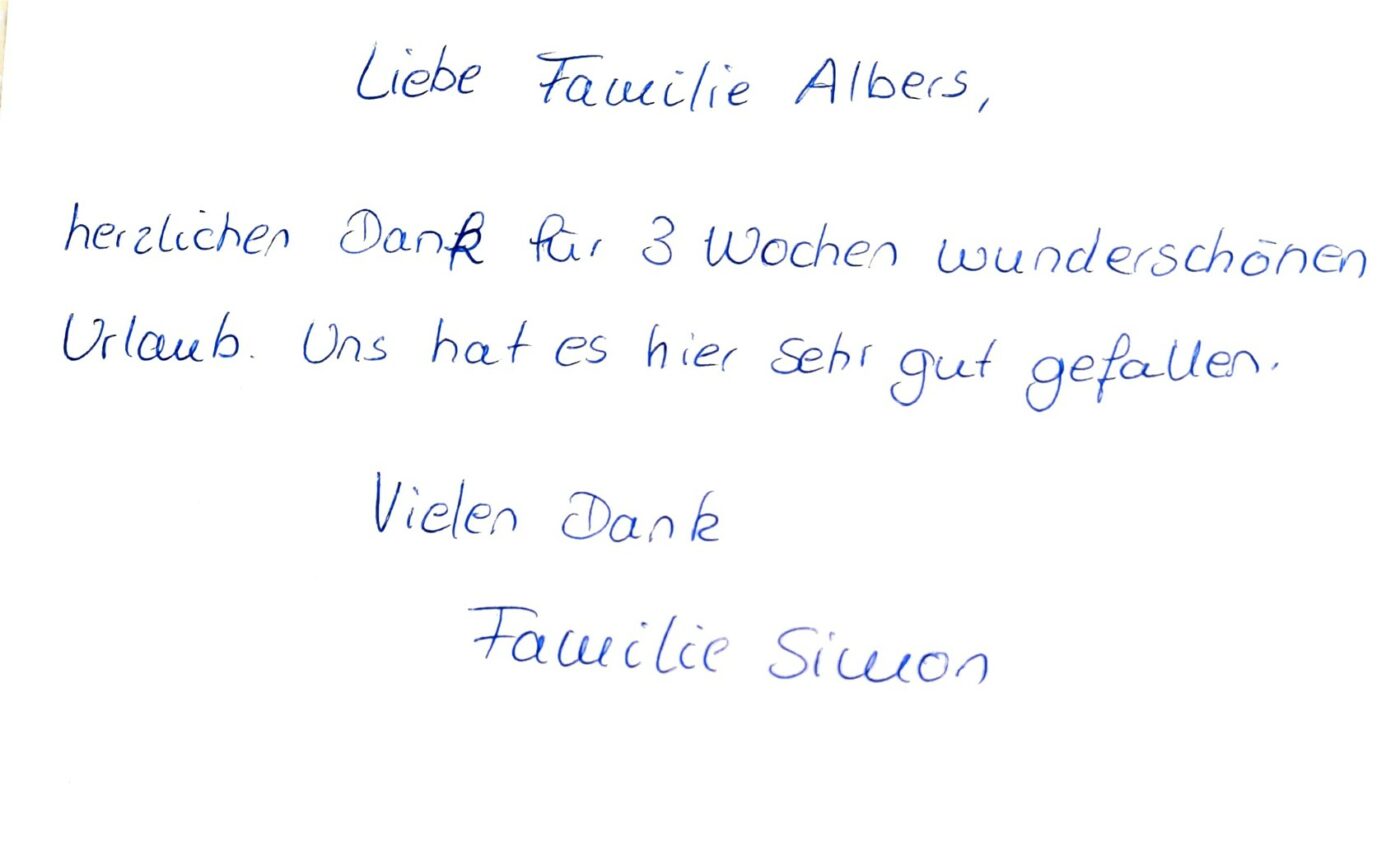 Liebe Familie Albers,
herzlichen Dank für 3 Wochen wunderschönen
Urlaub. Uns hat es hier sehr gut gefallen.
Vielen Dank
Familie Simon